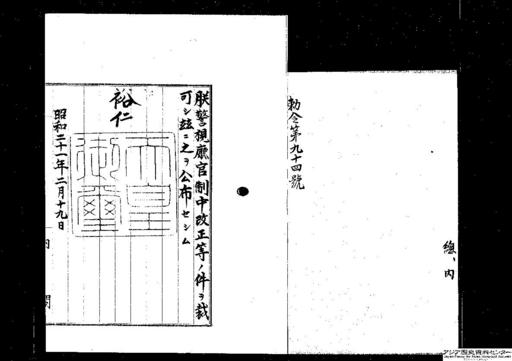 勅令第九十四號
總、内
朕警視廳官制中改正等ノ件ヲ裁
可シ玆ニ之ヲ公布セシム
裕仁
天皇
御璽
昭和二十一年二月十九日
内閣
アジア歴史資料センター